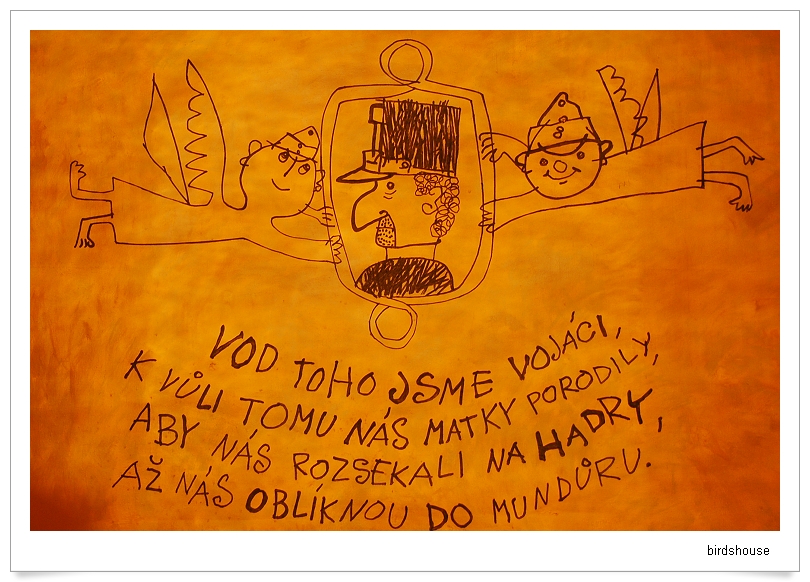 8
VOD TOHO JSME VOJÁCI,
K VŮLI TOMU NÁS MATKY PORODILY,
ABY NÁS ROZSEKALI NA HADRY,
AŽ NÁS OBLÍKNOU DO MUNDŮRU.
birdshouse